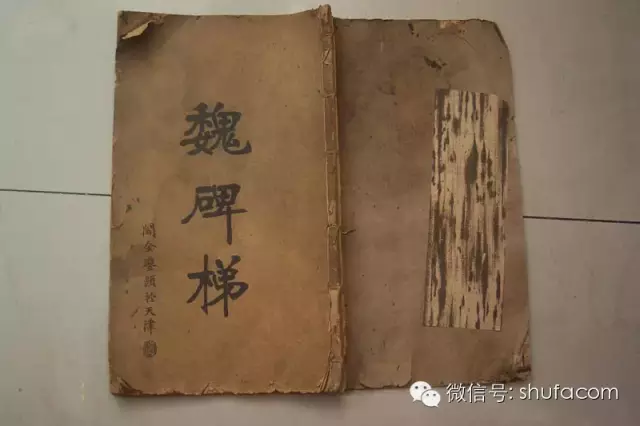 魏碑梯
阎金鎏题於天津
微信号: shufacom